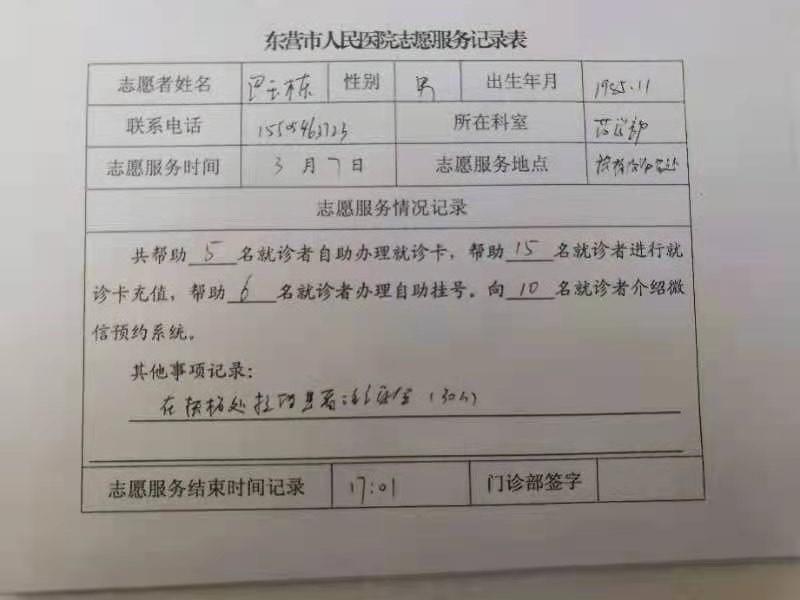 东营市人民医院志愿服务记录表
志愿者姓名 性别 男 出生年月 1985.11
联系电话 所在科室
志愿服务时间 3月7日 志愿服务地点
志愿服务情况记录
共帮助5名就诊者自助办理就诊卡，帮助15名就诊者进行就
诊卡充值，帮助6名就诊者办理自助挂号。向10名就诊者介绍微
信预约系统。
其他事项记录：
在 处 (30人)
志愿服务结束时间记录 17:01 门诊部签字